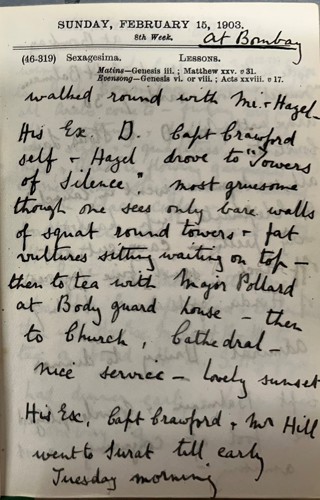 SUNDAY, FEBRUARY 15, 1903.
8th Week. at Bombay
(46-319) Sexagesima. LESSONS.
Matins—Genesis iii.; Matthew xxv. v 31.
Evensong—Genesis vi. or viii.; Acts xxviii. v 17.
walked round with Mr. + Hazel—
His Ex. D. Capt Crawford
self + Hazel drove to "Towers
of Silence". most gruesome
though one sees only bare walls
of squat round towers + fat
vultures sitting waiting on top —
then to tea with Major Pollard
at Body guard house — then
to Church, Cathedral —
nice service — lovely sunset
His Ex, Capt Crawford + Mr Hill
went to Surat till early
Tuesday morning